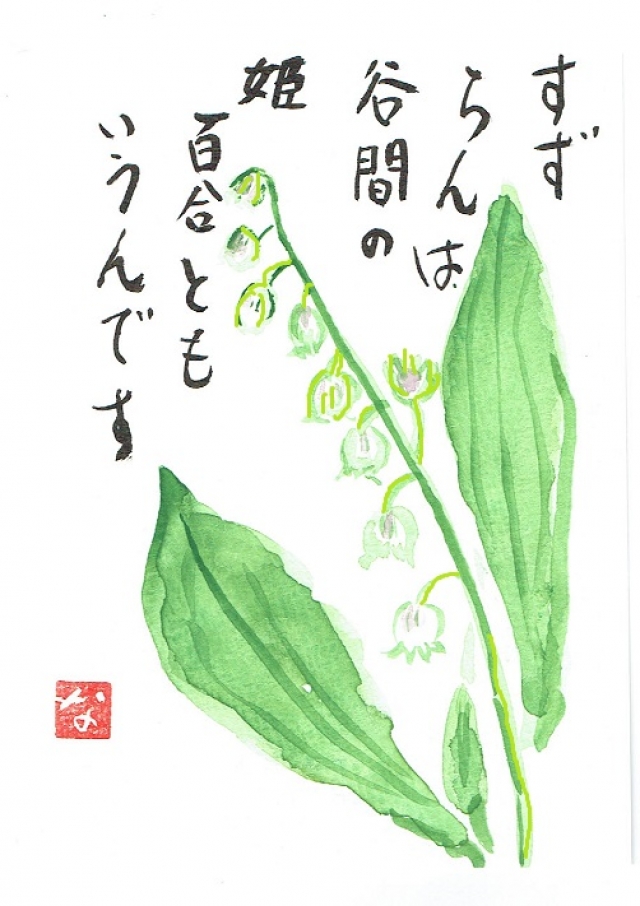 すず
らんは
谷間の
姫
百合とも
いうんです
な